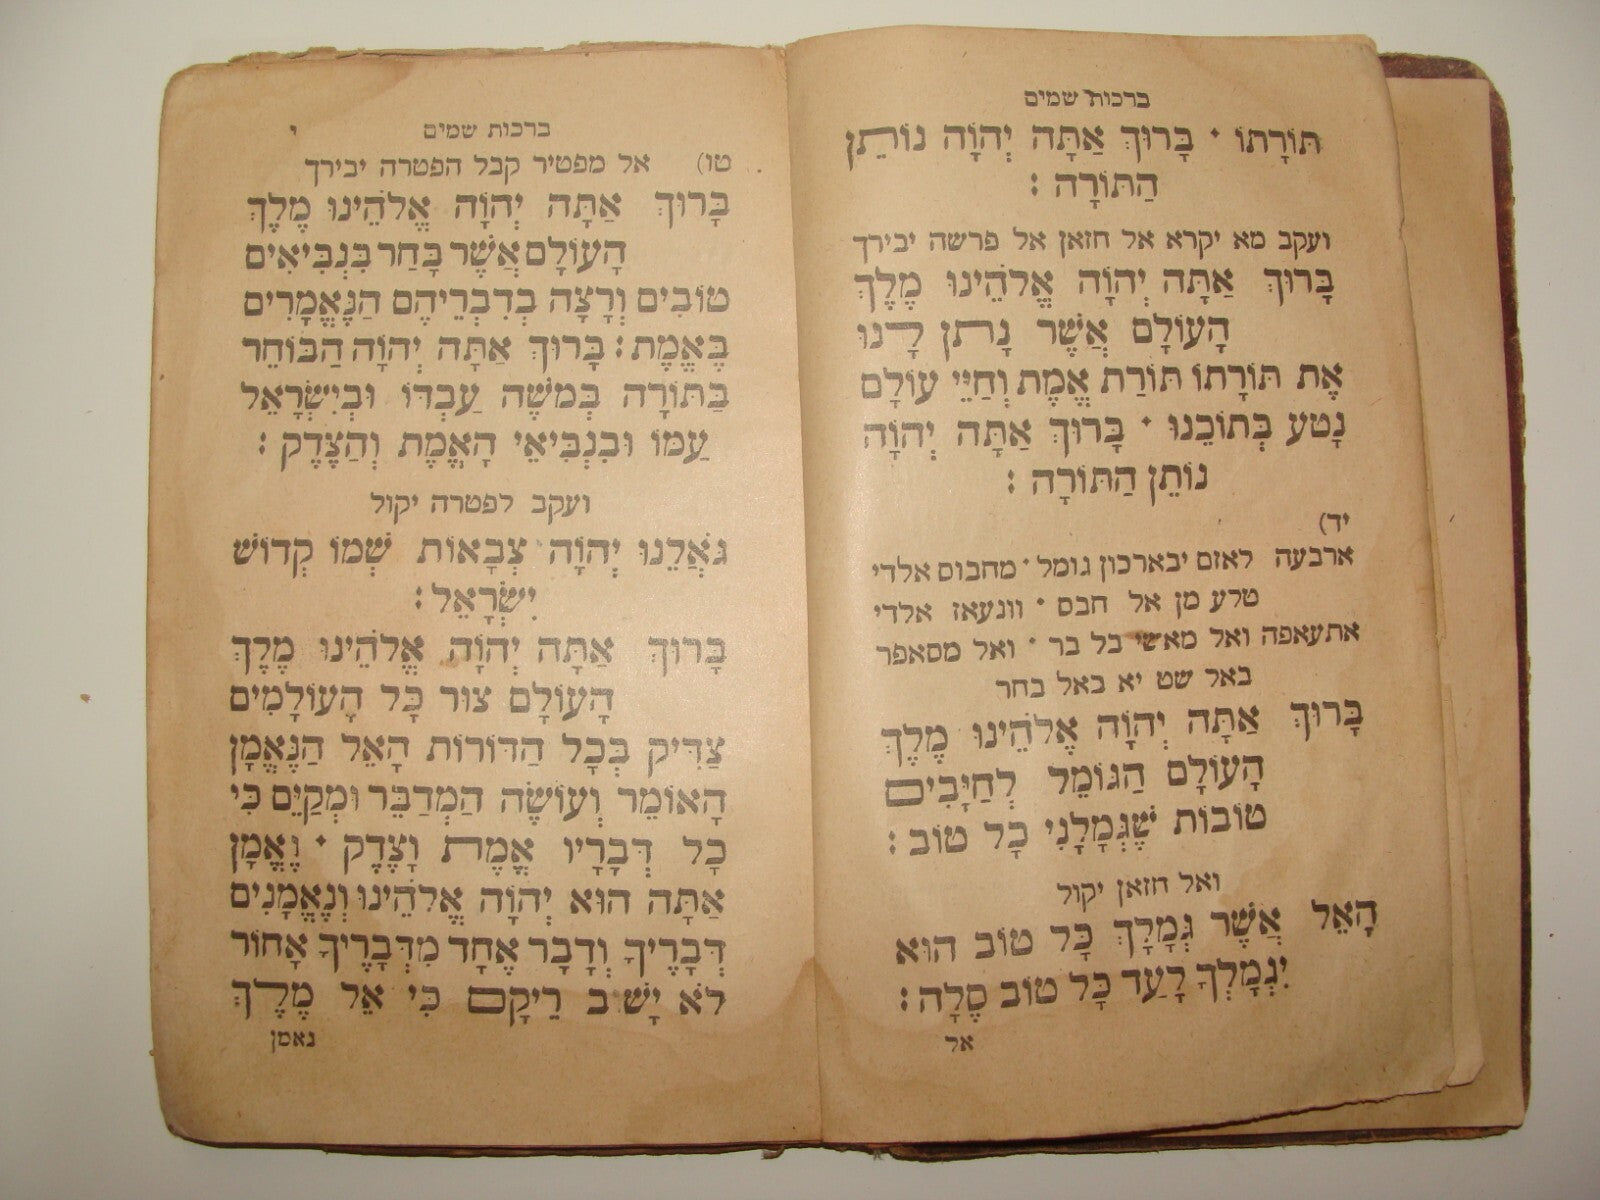 ברכות שמים
תּוֹרָתוֹ • בָּרוּךְ אַתָּה יְהֹוָה נוֹתֵן
הַתּוֹרָה :
ועקב מא יקרא אל חזאן אל פרשה יבירך
בָּרוּךְ אַתָּה יְהֹוָה אֱלֹהֵינוּ מֶלֶךְ
הָעוֹלָם אֲשֶׁר נָתַן לָנוּ
אֶת תּוֹרָתוֹ תּוֹרַת אֱמֶת וְחַיֵּי עוֹלָם
נָטַע בְּתוֹכֵנוּ • בָּרוּךְ אַתָּה יְהֹוָה
נוֹתֵן הַתּוֹרָה :
יד)
ארבעה לאזם יבארכון גומל • מחבוס אלדי
טרע מן אל חבס • וונעאז אלדי
אתעאפה ואל מאשי בל בר • ואל מסאפר
באל שט יא באל בחר
בָּרוּךְ אַתָּה יְהֹוָה אֱלֹהֵינוּ מֶלֶךְ
הָעוֹלָם הַגּוֹמֵל לְחַיָּבִים
טוֹבוֹת שֶׁגְּמָלָנִי כָּל טוֹב :
ואל חזאן יקול
הָאֵל אֲשֶׁר גְּמָלָךְ כָּל טוֹב הוּא
יִגְמָלְךָ לָעַד כָּל טוֹב סֶלָה :
אל
ברכות שמים י
טו) אל מפטיר קבל הפטרה יבירך
בָּרוּךְ אַתָּה יְהֹוָה אֱלֹהֵינוּ מֶלֶךְ
הָעוֹלָם אֲשֶׁר בָּחַר בִּנְבִיאִים
טוֹבִים וְרָצָה בְדִבְרֵיהֶם הַנֶּאֱמָרִים
בֶּאֱמֶת : בָּרוּךְ אַתָּה יְהֹוָה הַבּוֹחֵר
בַּתּוֹרָה בְּמֹשֶׁה עַבְדּוֹ וּבְיִשְׂרָאֵל
עַמּוֹ וּבִנְבִיאֵי הָאֱמֶת וְהַצֶּדֶק :
ועקב לפטרה יקול
גֹּאֲלֵנוּ יְהֹוָה צְבָאוֹת שְׁמוֹ קְדוֹשׁ
יִשְׂרָאֵל :
בָּרוּךְ אַתָּה יְהֹוָה אֱלֹהֵינוּ מֶלֶךְ
הָעוֹלָם צוּר כָּל הָעוֹלָמִים
צַדִּיק בְּכָל הַדּוֹרוֹת הָאֵל הַנֶּאֱמָן
הָאוֹמֵר וְעוֹשֶׂה הַמְדַבֵּר וּמְקַיֵּם כִּי
כָל דְּבָרָיו אֱמֶת וָצֶדֶק • נֶאֱמָן
אַתָּה הוּא יְהֹוָה אֱלֹהֵינוּ וְנֶאֱמָנִים
דְּבָרֶיךָ וְדָבָר אֶחָד מִדְּבָרֶיךָ אָחוֹר
לֹא יָשׁוּב רֵיקָם כִּי אֵל מֶלֶךְ
נאמן